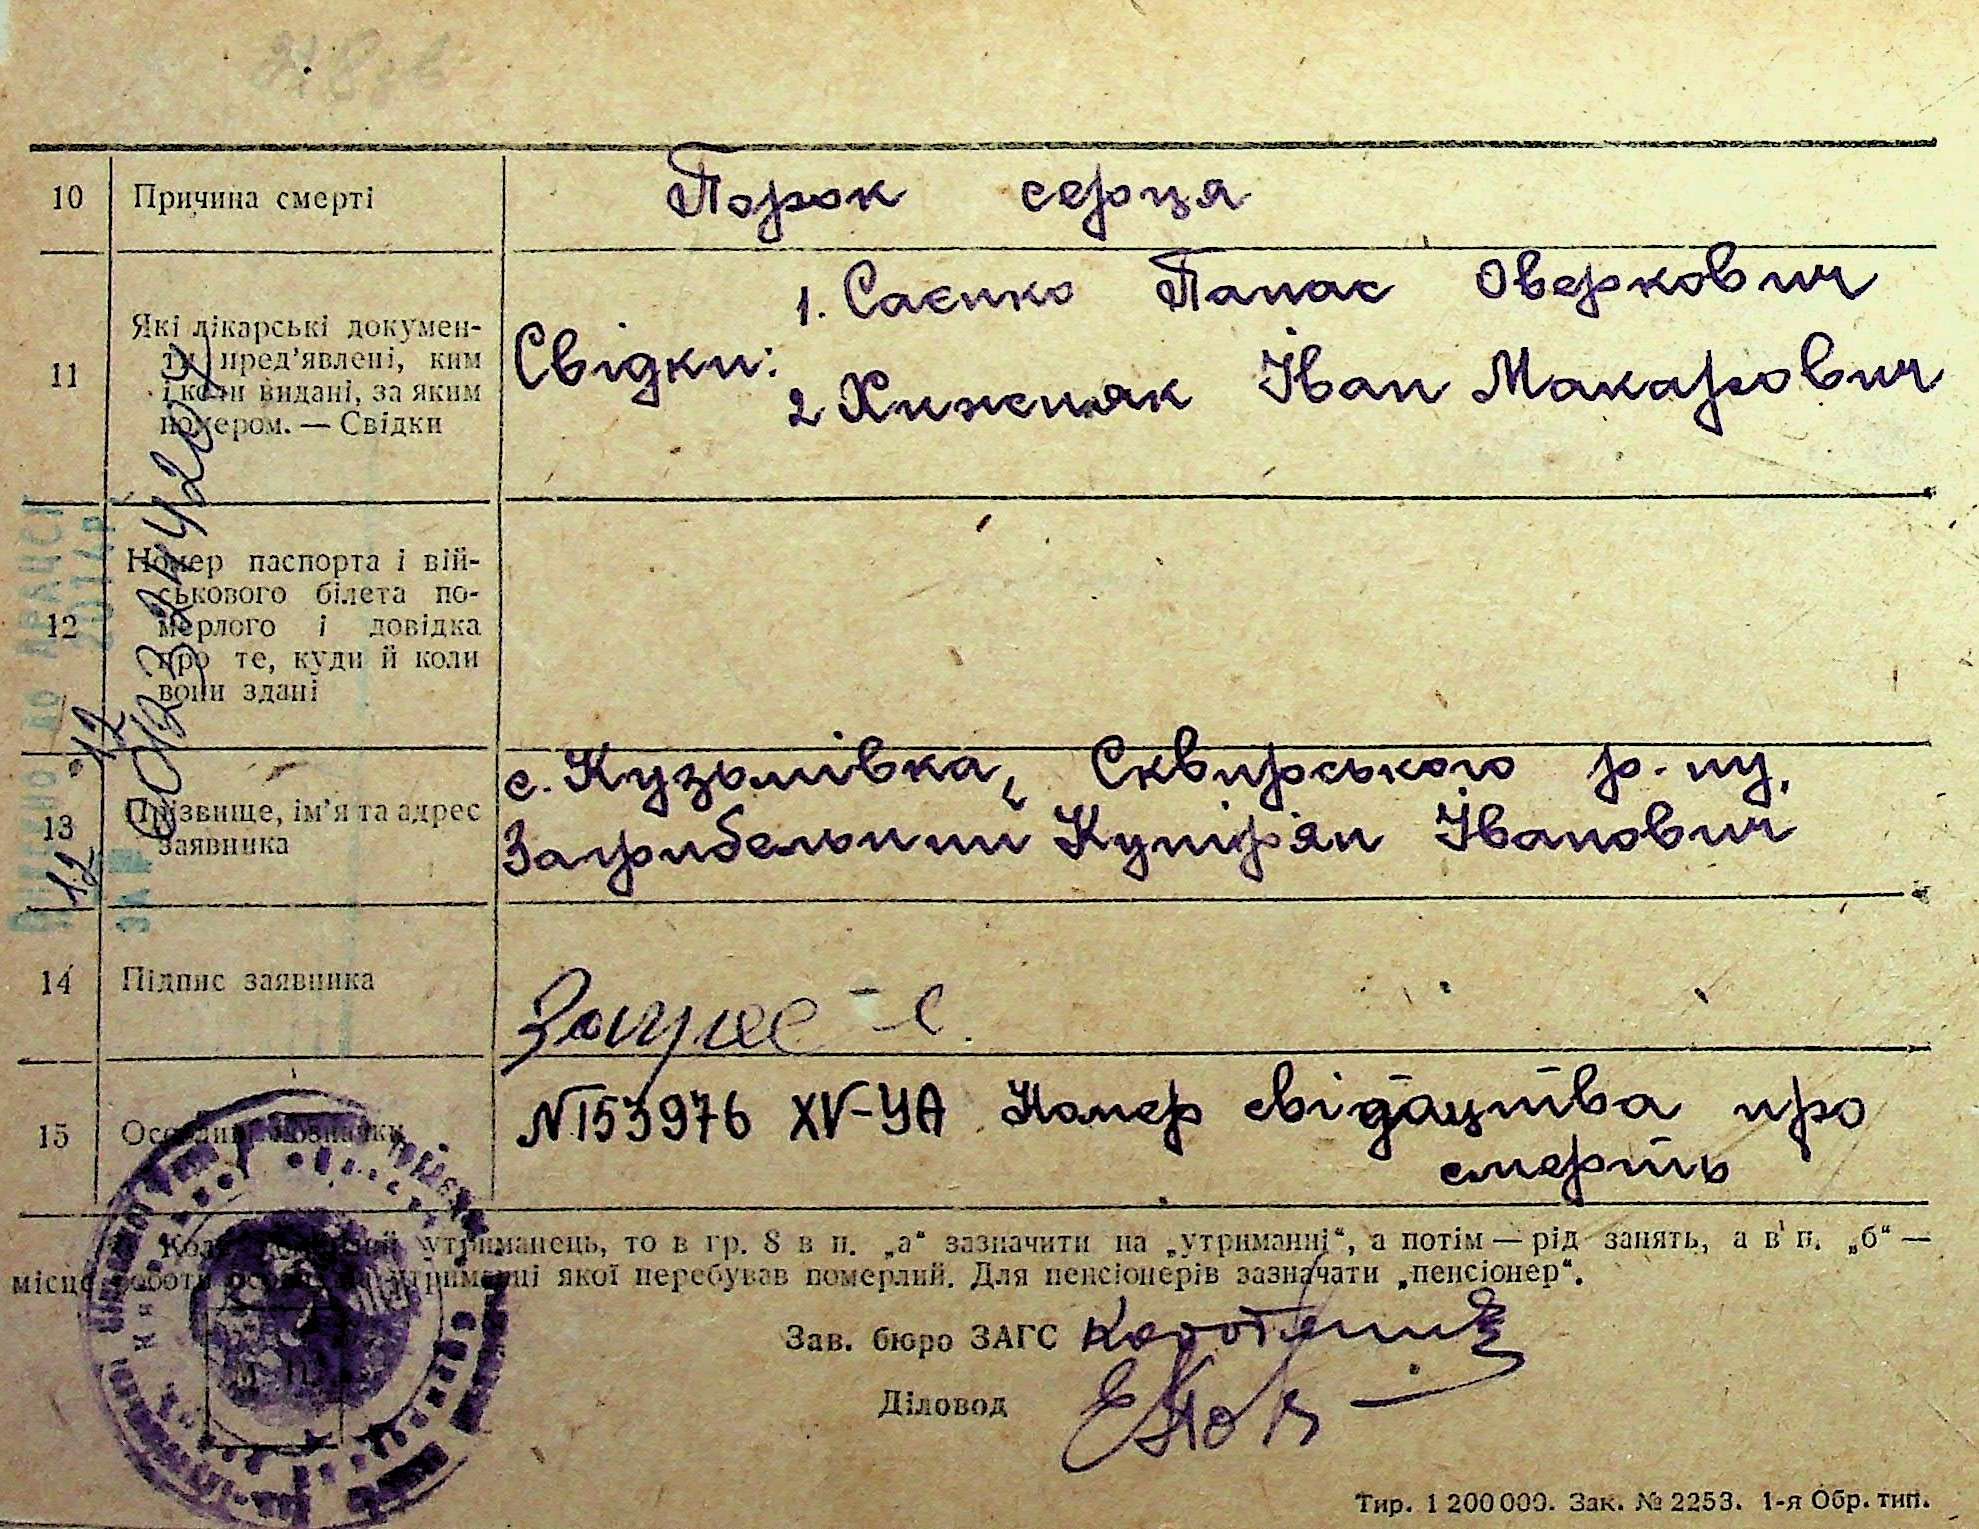 10 Причина смерті Порок серця
11 Які лікарські докумен-
ти пред’явлені, ким
і коли видані, за яким
номером. — Свідки
Свідки:
1. Саєнко Панас Оверкович
2 Хижняк Іван Макарович
12 Номер паспорта і вій-
ськового білета по-
мерлого і довідка
про те, куди й коли
вони здані
13 Прізвище, ім’я та адрес
заявника
с. Кузьмівка, Сквирського р-ну,
Загребельний Купір'ян Іванович
14 Підпис заявника
15 Особливі позначки
N153976 XV-УА Номер свідоцтва про
смерть
Коли померлий утриманець, то в гр. 8 в п. „а“ зазначити на „утриманні“, а потім — рід занять, а в п. „б“ —
місце роботи особи, на утриманні якої перебував померлий. Для пенсіонерів зазначати „пенсіонер“.
Зав. бюро ЗАГС
Діловод
Тир. 1 200 000. Зак. № 2253. 1-я Обр. тип.